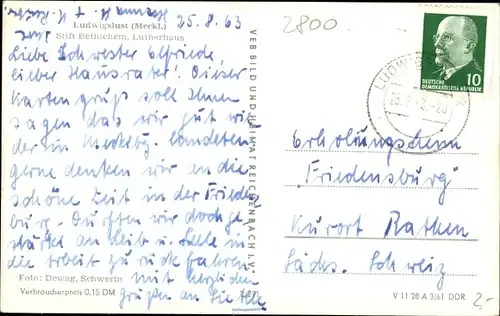 Hermann H. + K. Reuter
25. 8. 63
2800
Ludwigslust (Meckl.)
Stift Bethlehem, Lutherhaus
Liebe Schwester Elfriede,
lieber Hausvater! Dieser
Kartengruß soll Ihnen
sagen das wir gut wie
der in Mecklbg. landeten
gerne denken wir an die
schöne Zeit in der Friedens
burg. Durften wir doch ge
stärkt an Leib u. Seele in
die Arbeit zurück fahren.
mit herzlichen
Grüßen an Sie Alle
Foto: Dewag, Schwerin
Verbraucherpreis 0,15 DM
VEB BILD UND HEIMAT REICHENBACH I. V.
10
DEUTSCHE
DEMOKRATISCHE REPUBLIK
LUDWIGSLUST
Erholungsheim
"Friedensburg"
Kurort Rathen
Sächs. Schweiz
V 11 28 A 3/61 DDR
2-